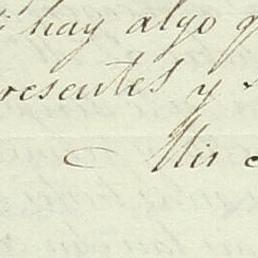 hay algo
resentes y
Mis